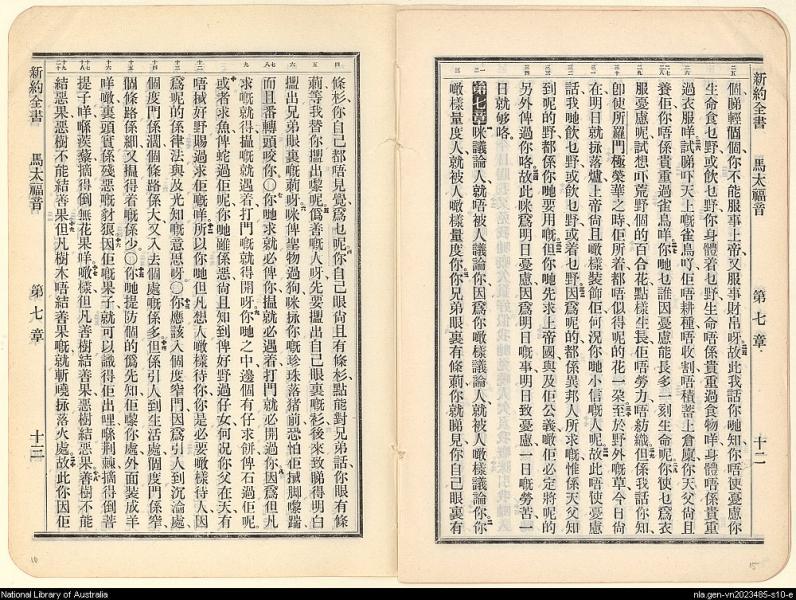 新約全書 馬太福音 第七章 十二
個睇輕個個你不能服事上帝又服事財帛呀故此我話你哋知你唔使憂慮你
生命食乜野或飲乜野你身體着乜野生命唔係貴重過食物咩身體唔係貴重
過衣服咩試睇吓天上嘅雀鳥吖佢唔耕種唔收割唔積蓄上倉廩你天父尙且
養佢你唔係貴重過雀鳥咩你哋乜誰因憂慮能長多一刻生命呢你使乜爲衣
服憂慮呢試想吓荒野個的百合花點樣生長佢唔勞力唔紡織但係我話你知
卽使所羅門極榮華之時佢所着都唔似得呢的花一朶至於野外嘅草今日尙
在明日就拺落爐上帝尙且噉樣裝飾佢何況你哋小信嘅人呢故此唔使憂慮
話我哋飲乜野或飲乜野或着乜野因爲呢的都係異邦人所求嘅惟係天父知
到呢的野都係你哋要用嘅但你哋先求上帝國與及佢公義噉佢必定將呢的
另外俾過你咯故此咪爲明日憂慮因爲明日嘅事明日致憂慮一日嘅勞苦一
日就够咯
第七章咪議論人就唔被人議論你因爲你噉樣議論人就被人噉樣議論你你
噉樣量度人就被人噉樣量度你你兄弟眼裏有條蓟你就睇見你自己眼裏有
條杉你自己都唔見覺爲乜呢你自己眼尙且有條杉點能對兄弟話你眼有條
蓟等我替你搵出嚟呢僞善嘅人呀先要搵出自己眼裏嘅杉後來致睇得明白
搵出兄弟眼裏嘅蓟呀咪俾聖物過狗咪拺你嘅珍珠落猪前恐怕佢掝脚嚟踹
而且番轉頭咬你〇你哋求就必俾你搵就必遇着打門就必開過你因爲但凡
求嘅就得攝嘅就遇着打門嘅就得開呀你哋之中邊個有仔求餅俾石過佢呢
或者求魚俾蛇過佢呢你哋雖係惡尙且知到俾好野過仔女何況你父在天有
唔掝好野賜過求佢嘅咩所以你哋但凡想人噉樣待你你是必要噉樣待人因
爲呢的係律法與及先知嘅意思呀〇你應該入個度窄門因爲引人到沉淪處
個度門係濶個條路係大又入去個處嘅係多但係引人到生活處個度門係窄
個條路係細又搵得着嘅係少〇你哋提防個的僞先知佢嚟你處外面裝成羊
咩噉裏頭實係殘惡嘅豺狼因佢嘅果子就可以識得佢出哩嘅荆棘摘得倒菩
提子咩嘅蒺藜摘得倒無花果咩噉樣但凡善樹結善果惡樹結惡果善樹不能
結惡果惡樹不能結善果但凡樹木唔結善果嘅就斬嘵拺落火處故此你因佢
新約全書 馬太福音 第七章 十三
National Library of Australia
nla.gen-vn2023485-s10-e